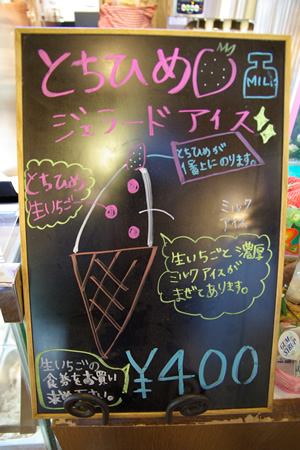 とちひめ
MILK
ジェラードアイス
とちひめが
1番上にのります。
とちひめ
生いちご
ミルク
アイス
生いちごと濃厚
ミルクアイスが
まぜてあります。
生いちごの
食券をお買い
求め下さい。
¥400
GUM
SYRUP